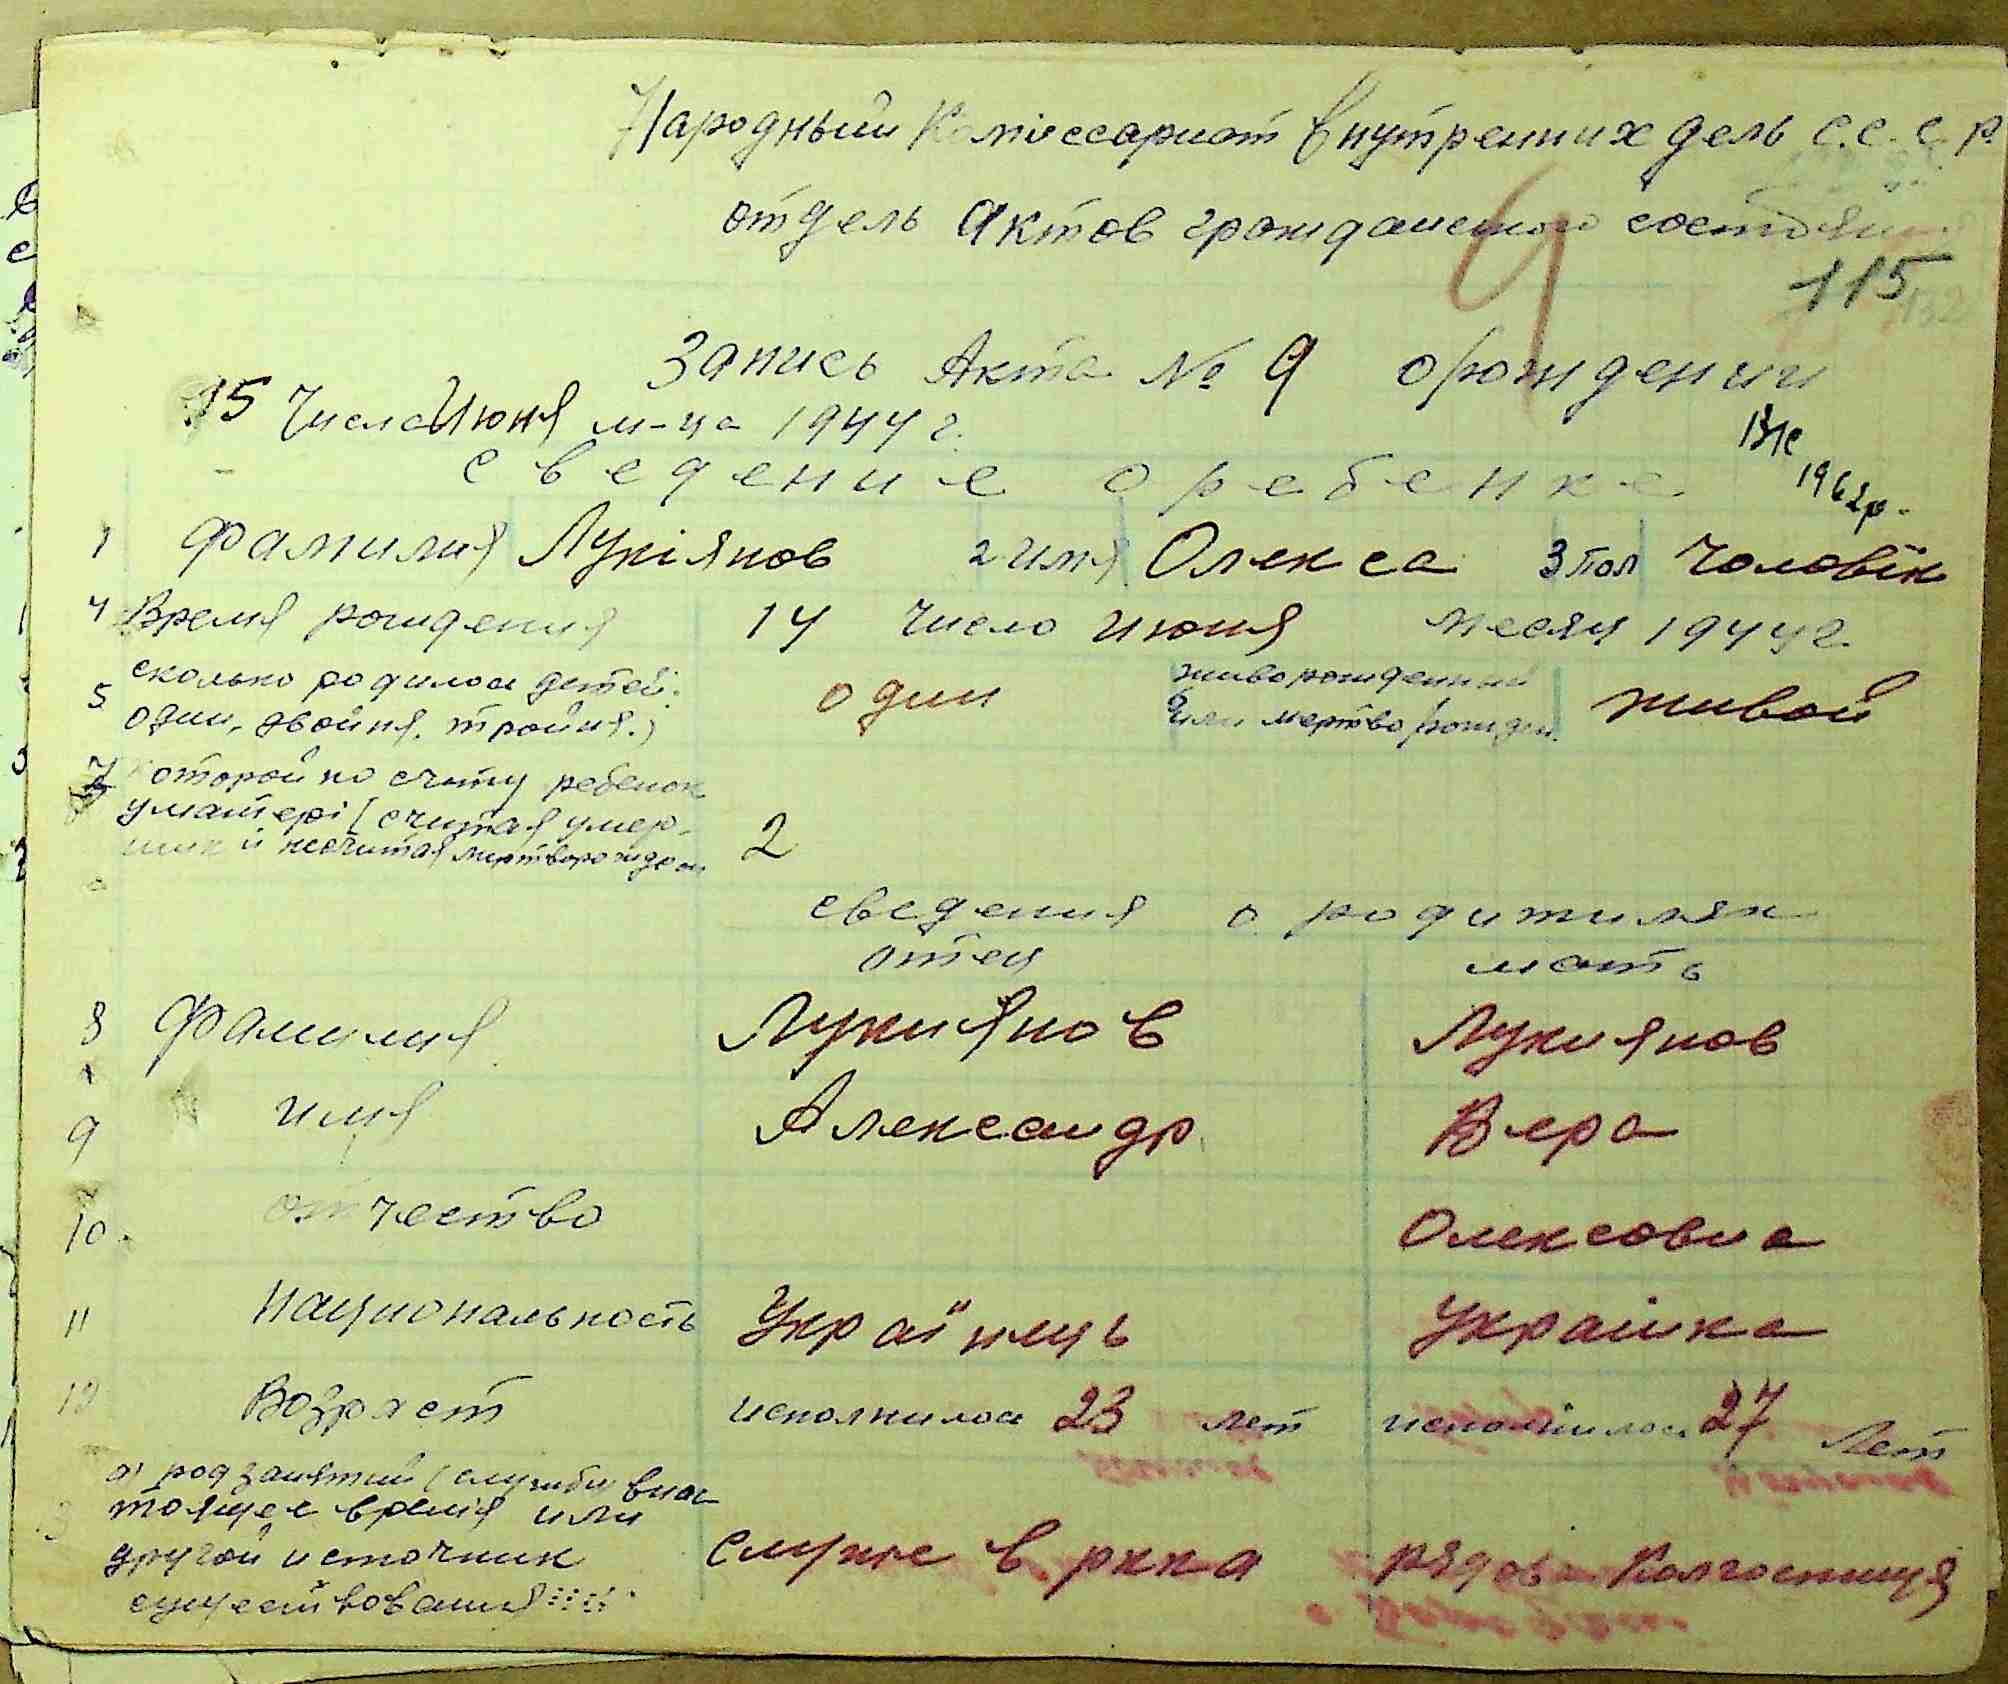 Народный Комиссариот Внутренних дель С.С.С.Р.
отдель Актов гражданского состояния
115
Запись Акта № 9 о рождении
15 Числа Июня м-ца 1944 г.
сведение о ребенке
1962р.
1 Фамилия Лукіянов 2 имя Олекса 3 пол Чоловік
4 Время рождения 14 число июня месяц 1944 г.
5 сколько родилось детей: один, двойня, тройня.) один 6 живорожденный или мертворожден. живой
7 которой по счету ребенок
у матері (считая умер-
ших и несчитая мертворожден 2
сведения о родителях
отец мать
8 Фамилия Лукиянов Лукиянов
9 имя Александр Вера
10 отчество Олексовна
11 Национальность Українець Украинка
12 Возраст исполнилось 23 лет исполнилось 27 Лет
а) род занятий (службы в нас-
тоящее время или
другой источник
существования служе в ркка рядова Колгоспниця